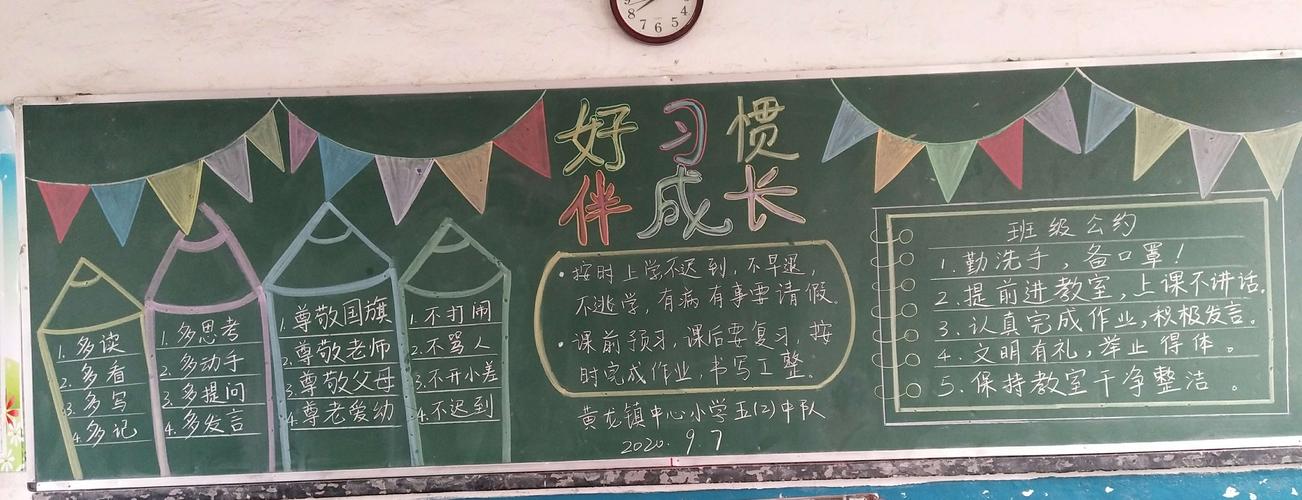 好习惯
伴成长
1.多读
2.多看
3.多写
4.多记
1.多思考
2.多动手
3.多提问
4.多发言
1.尊敬国旗
2.尊敬老师
3.尊敬父母
4.尊老爱幼
1.不打闹
2.不骂人
3.不开小差
4.不迟到
·按时上学不迟到,不早退,
不逃学,有病有事要请假。
·课前预习,课后要复习,按
时完成作业,书写工整。
黄龙镇中心小学五(2)中队
2020.9.7
班级公约
1.勤洗手,备口罩!
2.提前进教室,上课不讲话。
3.认真完成作业,积极发言。
4.文明有礼,举止得体。
5.保持教室干净整洁。
8 7 6 5 4